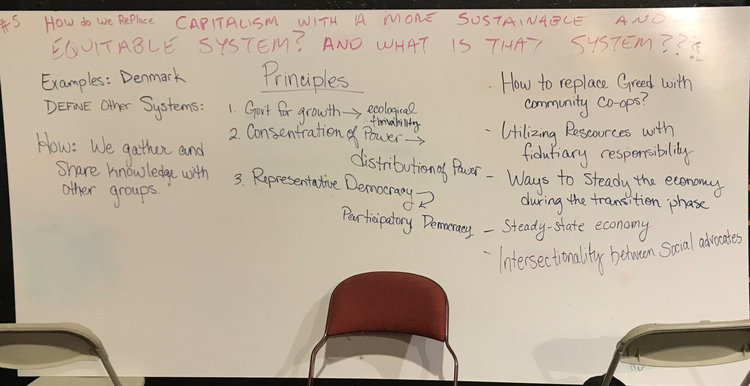 #5 HOW DO WE REPLACE CAPITALISM WITH A MORE SUSTAINABLE AND
EQUITABLE SYSTEM? AND WHAT IS THAT SYSTEM???
Examples: Denmark
DEFINE Other Systems:
How: We gather and
Share knowledge with
other groups.
Principles
1. Gov't for growth → ecological
2. Consentration of Power →
distribution of Power
3. Representative Democracy
Participatory Democracy
· How to replace Greed with
community co-ops?
- Utilizing Rescources with
fidutiary responsibility
- Ways to Steady the economy
during the transition phase
- Steady-state economy
- Intersectionality between Social advocates